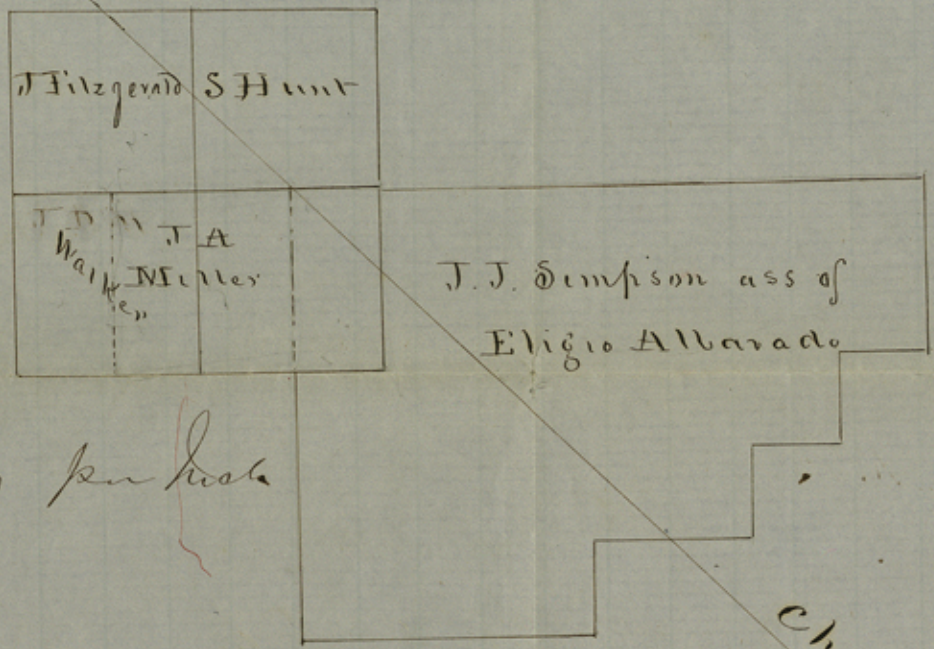 J Fitzgerald
S Hunt
Walker
J A
Miller
J. J. Simpson ass of
Eligio Albarado
per Inch